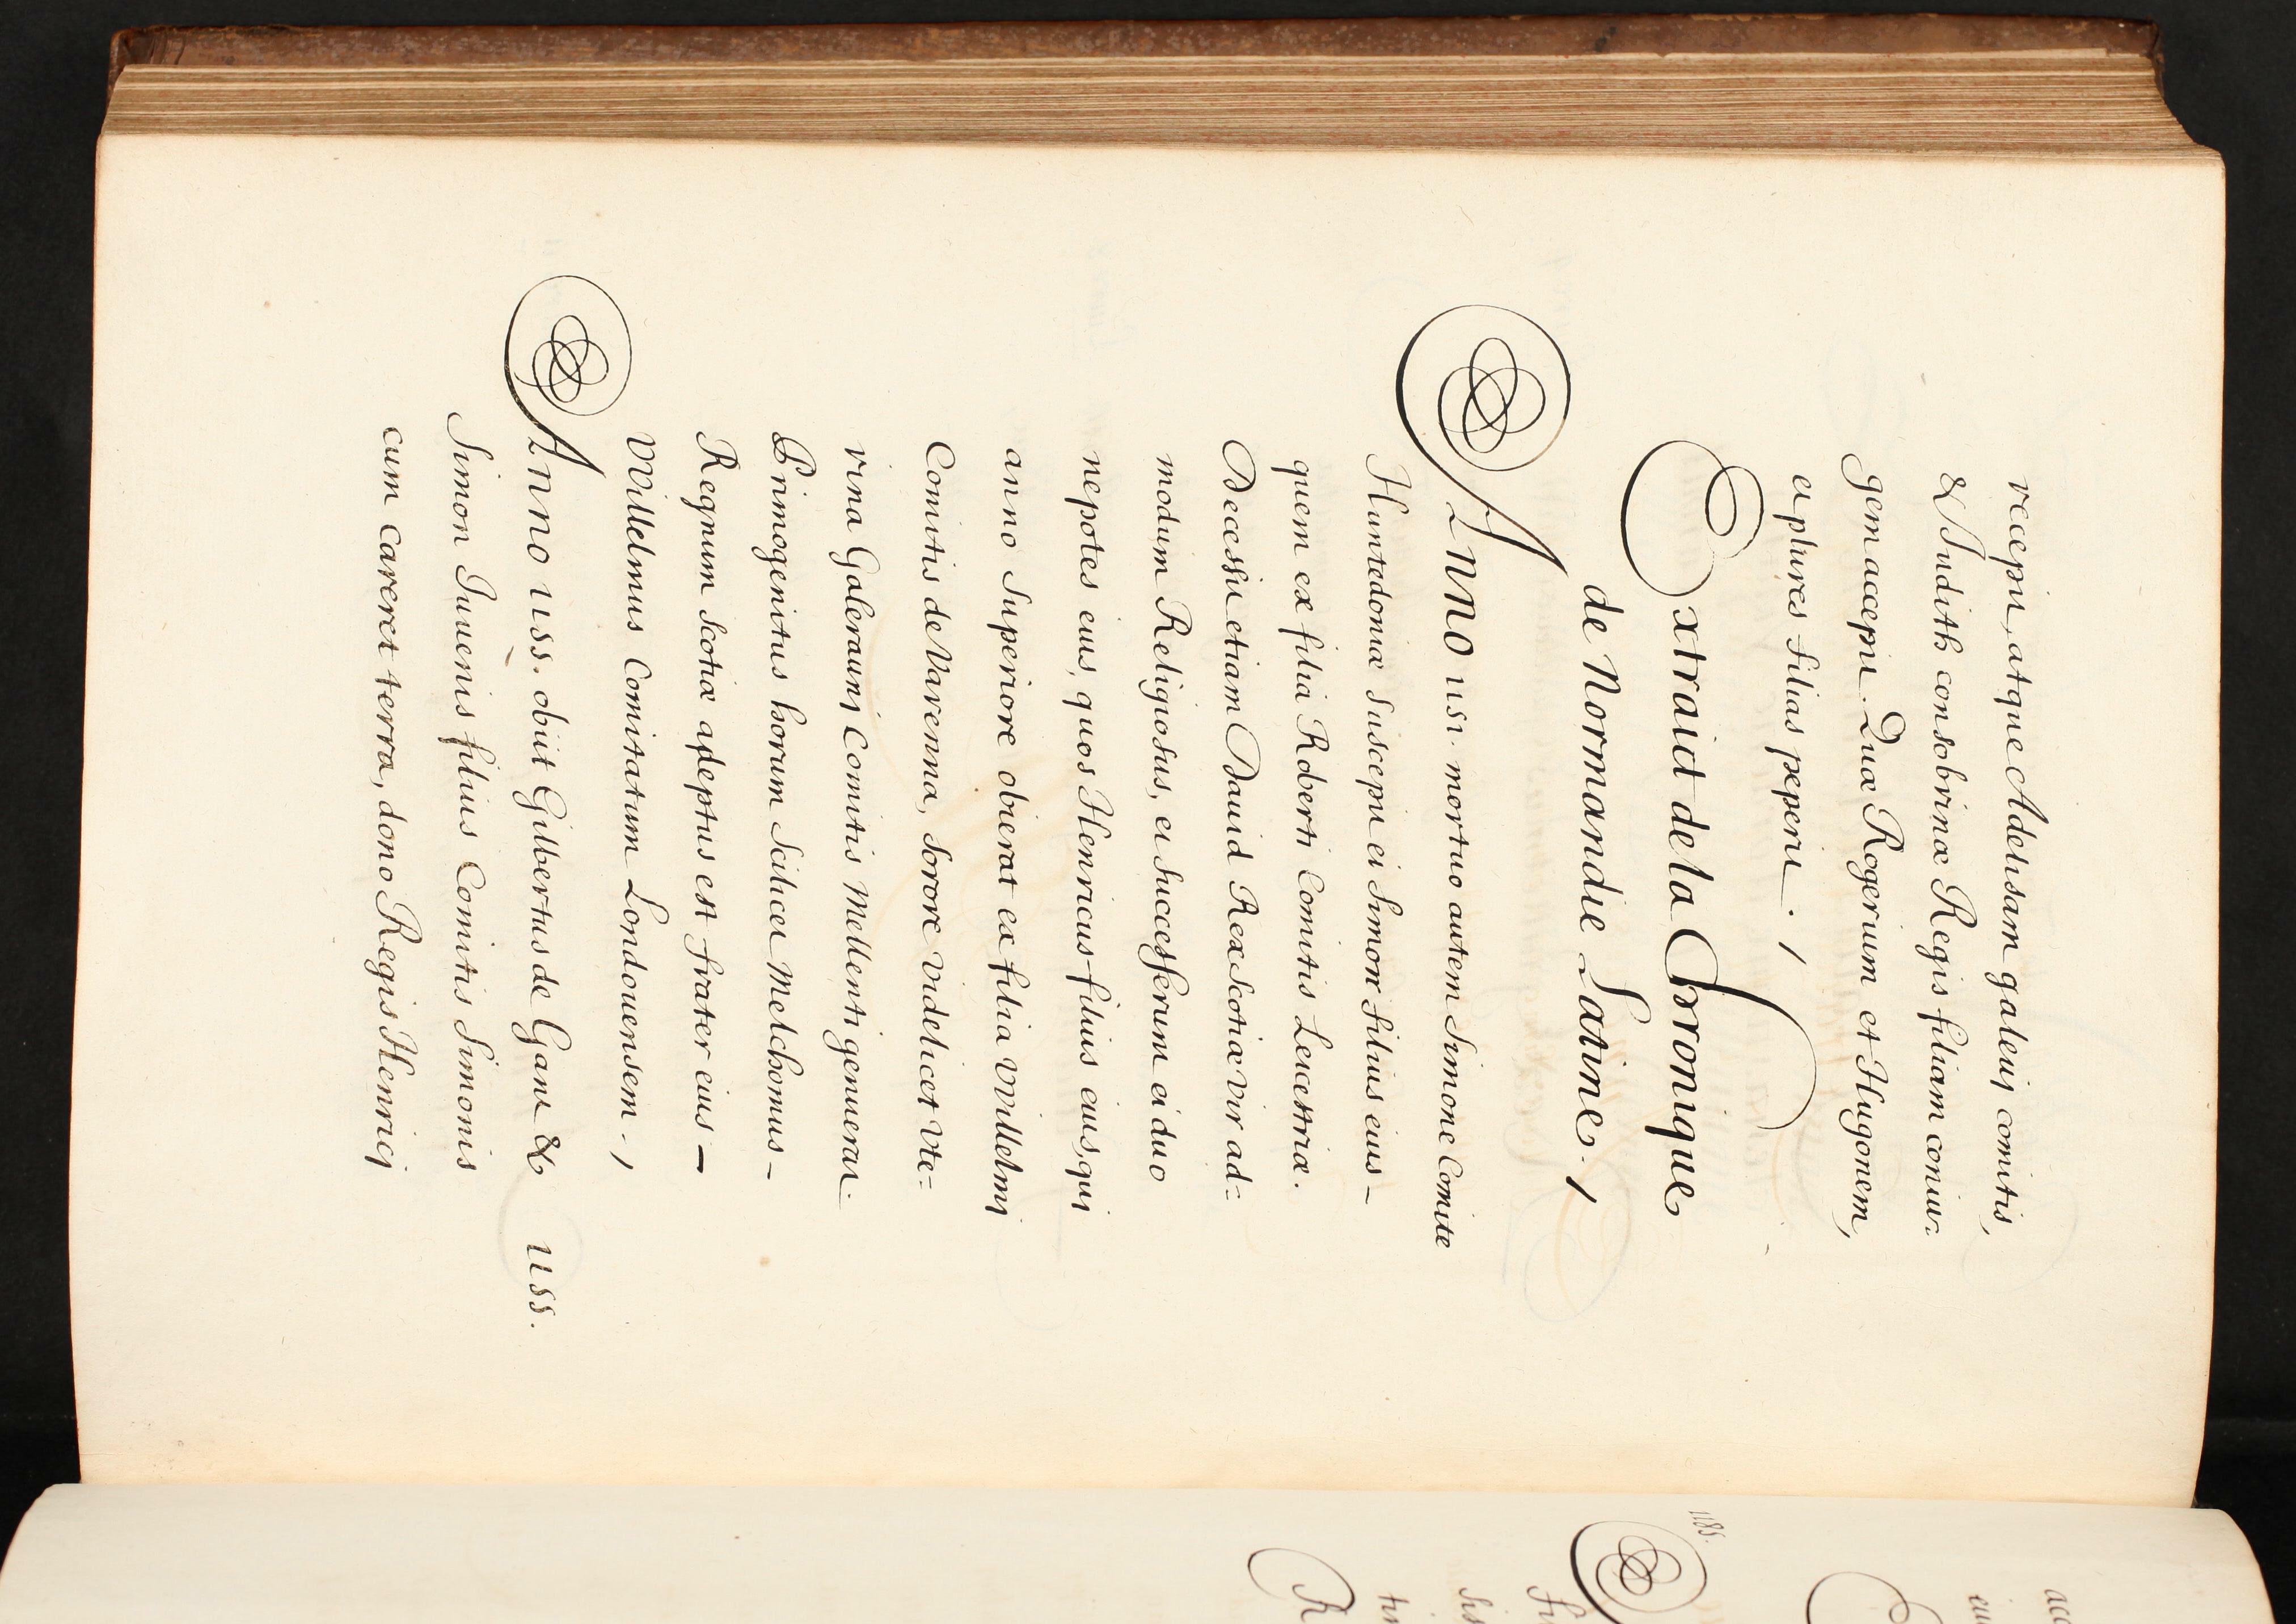 recepit, atque Adelisam galeij comitis,
& Judith consobrinæ Regis filiam coniu-
gem accepit. Quæ Rogerium et Hugonem,
et plures filias peperit. /
Extraict de la Cronique
de Normandie Latine. /
Anno 1151. mortuo autem Simone Comite
Huntedoniæ suscepit ei Simon filius eius -
quem ex filia Roberti Comitis Leicestriæ.
Decessit etiam Dauid Rex Scotiæ vir ad=
modum Religiosus, et successerunt ei duo
nepotes eius, quos Henricus filius eius, qui
anno superiore obierat ex filia Willelmi
Comitis de Varenna, sorore videlicet vte=
rina Galerani Comitis Mellenti genuerat.
Primogenitus horum scilicet Melchomus -
Regnum Scotiæ adeptus est frater eius -
Willelmus Comitatum Londouensem. /
Anno 1155. obiit Gilbertus de Gant & 1155.
Simon Juuenis filius Comitis Simonis
cum careret terra, dono Regis Henrici
1185.
acc
R